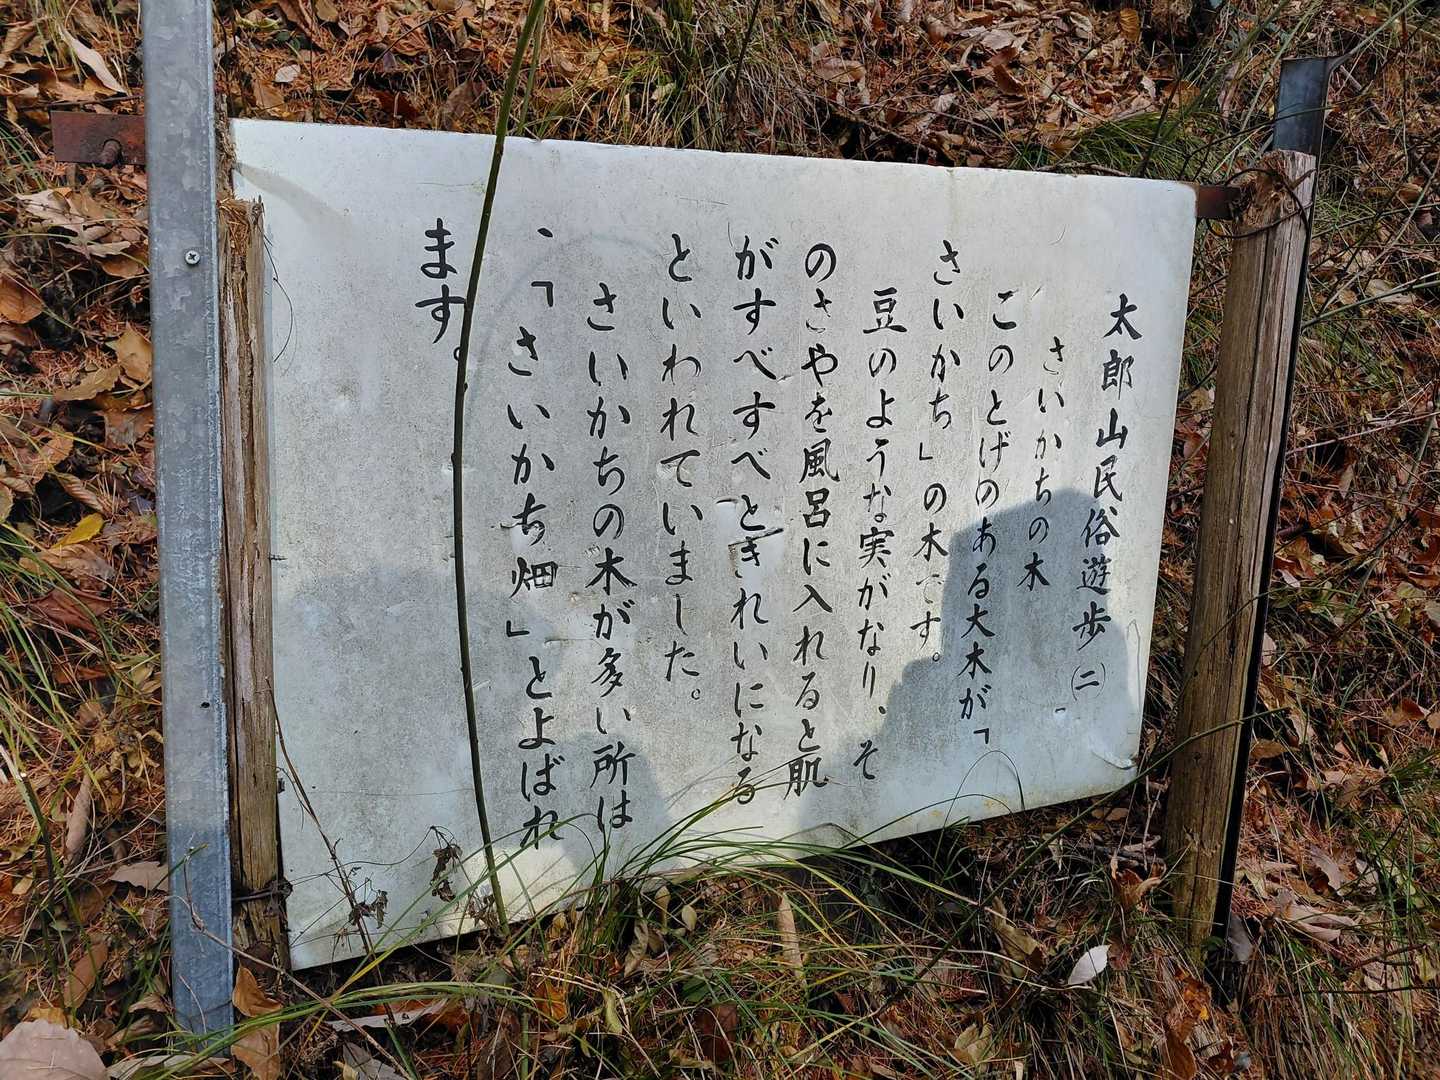 太郎山民俗遊歩(二)
さいかちの木
このとげのある大木が「
さいかち」の木です。
豆のような実がなり、そ
のさやを風呂に入れると肌
がすべすべときれいになる
といわれていました。
さいかちの木が多い所は
、「さいかち畑」とよばれ
ます。